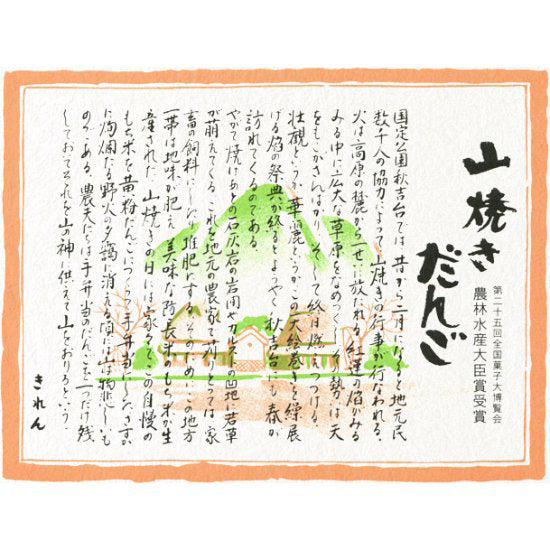 山焼きだんご
第二十五回全国菓子大博覧会
農林水産大臣賞受賞
国定公園秋吉台では、昔から二月になると地元民
数千人の協力によって、山焼きの行事が行なわれる。
火は高原の麓から一せいに放たれる。紅蓮の焔がみる
みる中に広大な草原をなめつくし、その勢は天
をもこがさんばかり、そして終日燃えつづける。
壮観というか、華麗というか、この大絵巻きを繰展
げる焔の祭典が終るとようやく秋吉台にも春が
訪れてくるのである。
やがて焼けあとの石灰石の岩間やカルストの凹地に若草
が萌えてくる。これを地元の農家で刈りとっては家
畜の飼料にし、堆肥にする。そのためにこの地方
一帯は地味が肥え、美味な防長米のもち米が生
産された。山焼きの日には家々でこの自慢の
もち米を黄粉だんごにつくって手弁当にしたさすが
に絢爛たる野火の夕靄に消える頃には山は物悲しいも
のである。農夫たちは手弁当のだんごを一つだけ残
しておいてそれを山の神に供えて山をおりるという。
きれん